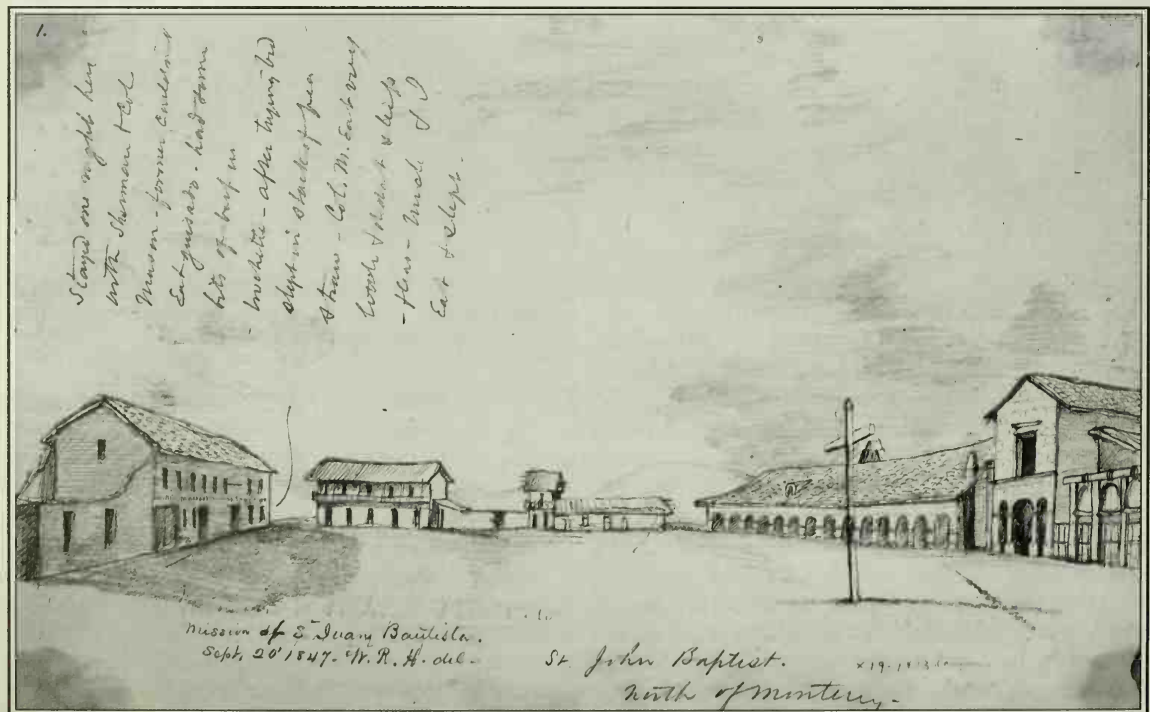 1.
Stayed one night here
with Sherman & Col
Mason - former couldn't
Eat guisado - had some
bits of beef on
- after trying bed
slept in stack of
straw - Col. M. Eat very
& sleep
- fleas - Uncle & I
Eat & slept.
Mission of Sn Juan Bautista.
Sept. 20 1847. W. R. H. del-
St. John Baptist.
North of Monterey-